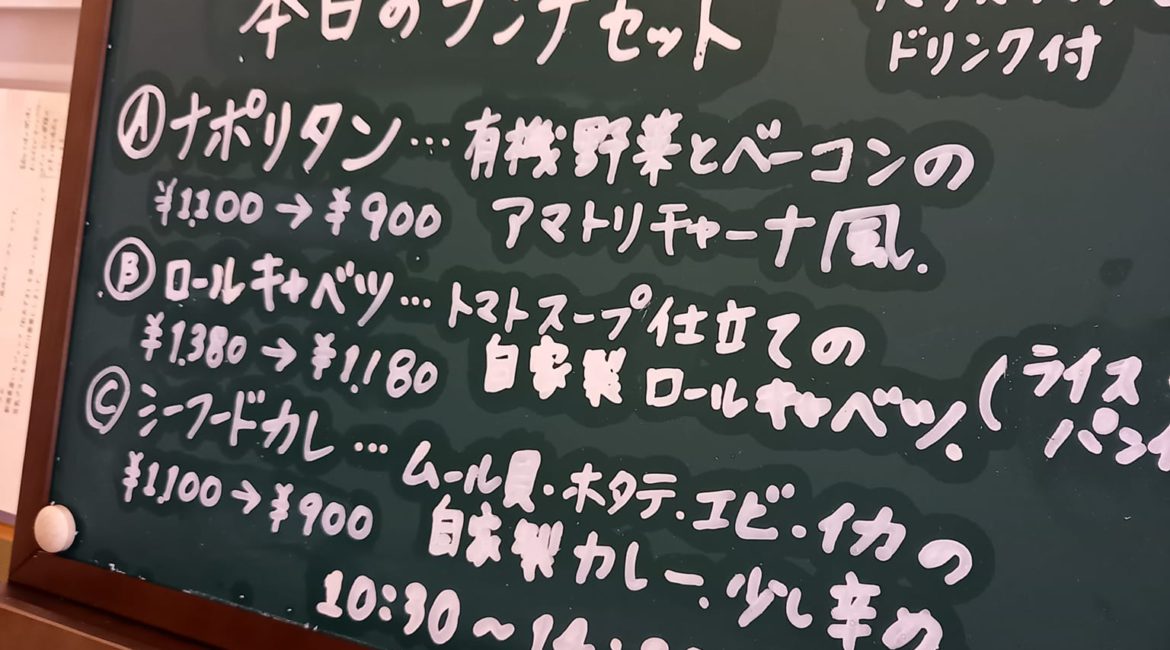 本日のランチセット
ドリンク付
Ⓐナポリタン…有機野菜とベーコンの
¥1,100→¥900 アマトリチャーナ風.
Ⓑロールキャベツ…トマトスープ仕立ての
¥1,380→¥1,180 自家製ロールキャベツ.(ライス
パン
Ⓒシーフードカレ…ムール貝・ホタテ・エビ・イカの
¥1,100→¥900 自家製カレー.少し辛め
10:30~14: